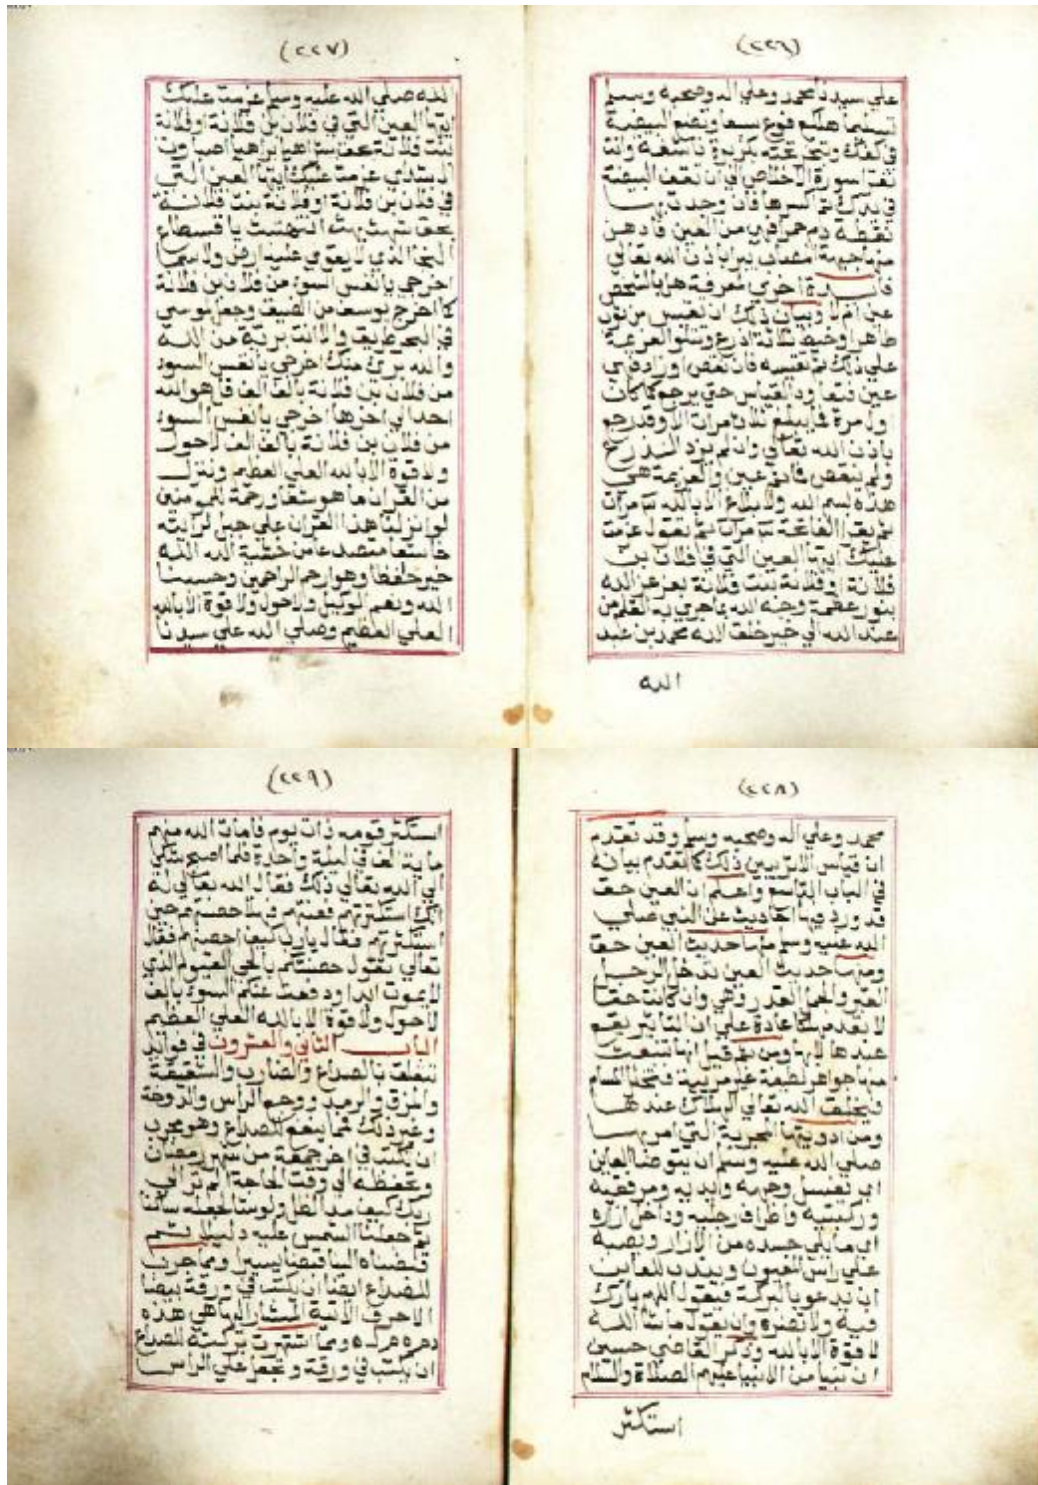 (٢٢٦)
علي سيدنا محمد وعلي اله وصحبه وسلم
تسليما هكذا سبعا وتضع البيضة
في كفك وانت
تقرا سورة الاخلاص الي ان تقف البيضة
في يدك ثم اكسرها فان وجدت بها
نقطة دم حمرا فهي من العين فادهن
منها جبهة المصاب يبرا باذن الله تعالي
فايدة اخري لمعرفة هل بالشخص
عين ام لا وبيان ذلك ان تقيس من ثوب
ثلاثة اذرع وتتلو العزيمة
علي ذلك ثم تقيسه فان نقص او زاد فهي
عين فتعاود القياس حتي يرجع كما كان
اول مرة فما يبلغ ثلاث مرات الا وقد رجع
باذن الله تعالي وان لم يزد الذراع
ولم ينقص فلا عين والعزيمة هي
هذه بسم الله ولا بلاغ الا بالله مرات
ثم يقرا الفاتحة مرات ثم تقول عزمت
عليك ايتها العين التي في فلان بن
فلانة او فلانة بنت فلانة بعز عز الله
بنور عظمة وجه الله بما جري به القلم من
عند الله الي خير خلق الله محمد بن عبد
الله
(٢٢٧)
الله صلي الله عليه وسلم عزمت عليك
ايتها العين التي في فلان بن فلانة او فلانة
بنت فلانة بحق شراهيا براهيا اصباوت
عزمت عليك ايتها العين التي
في فلان بن فلانة او فلانة بنت فلانة
بحق شهت بهت انتهشت يا قسطاع
الذي لا يقوي عليه ارض ولا سما
اخرجي يا نفس السوء من فلان بن فلانة
كما اخرج يوسف من الضيق وجعل لموسي
في البحر طريق والا انت برية من الله
والله بري منك اخرجي يا نفس السوء
من فلان بن فلانة بالف الف قل هو الله
احد الي اخرها اخرجي يا نفس السوء
من فلان بن فلانة بالف الف لا حول
ولا قوة الا بالله العلي العظيم وننزل
من القران ما هو شفا ورحمة للمومنين
لو انزلنا هذا القران علي جبل لرايته
خاشعا متصدعا من خشية الله الله
خير حفظا وهو ارحم الراحمين وحسبنا
الله ونعم الوكيل ولا حول ولا قوة الا بالله
العلي العظيم وصلي الله علي سيدنا
(٢٢٨)
محمد وعلي اله وصحبه وسلم وقد تقدم
ان قياس الاثر يبين ذلك كما تقدم بيانه
في الباب التاسع واعلم ان العين حق
قد ورد فيها احاديث عن النبي صلي
الله عليه وسلم منها حديث العين حق
ومنها حديث العين تدخل الرجل
القبر والجمل القدر وهي وان كانت حقا
لا بقدم عادة علي ان التاثير يقع
عندها لا بها ومن ثم قيل انها تنبعث
منها جواهر لطيفة غير مريية فتتخلل المسام
فيخلق الله تعالي الهلاك عندها
ومن ادويتها المجربة التي امر بها
صلي الله عليه وسلم ان يتوضا العاين
اي يغسل وجهه وايديه ومرفقيه
وركبتيه واطراف رجليه وداخل ازاره
اي ما يلي جسده من الازار ويصبه
علي راس المعيون ويندب للعاين
ان يدعو بالبركة فيقول اللهم بارك
فيه ولا تضره وان يقول ما شا الله
لا قوة الا بالله وذكر القاضي حسين
ان نبيا من الانبيا عليهم الصلاة والسلام
استكثر
(٢٢٩)
استكثر قومه ذات يوم فامات الله منهم
ماية الف في ليلة واحدة فلما اصبح شكي
الي الله تعالي ذلك فقال الله تعالي له
انك استكثرتهم فعنتهم فهلا حصنتهم حين
استكثرتهم فقال يارب كيف احصنهم فقال
تعالي تقول حصنتكم بالحي القيوم الذي
لا يموت ابدا ودفعت عنكم السوء بالف
لا حول ولا قوة الا بالله العلي العظيم
الباب الثاني والعشرون في فوايد
تتعلق بالصداع والضارب والشقيقة
والرمد ووجع الراس والدوخة
وغير ذلك فمما ينفع للصداع وهو مجرب
ان يكتب في اخر جمعة من شهر رمضان
وتحفظه الي وقت الحاجة الم تر الي
ربك كيف مد الظل ولو شا لجعله ساكنا
ثم جعلنا الشمس عليه دليلا ثم
قبضناه الينا قبضا يسيرا ومما جرب
للصداع ايضا ان يكتب في ورقة بيضا
الاحرف الاتية المشار اليها هي هذه
ومما اشتهرت بركته للصداع
ان يكتب في ورقة وتجعل علي الراس